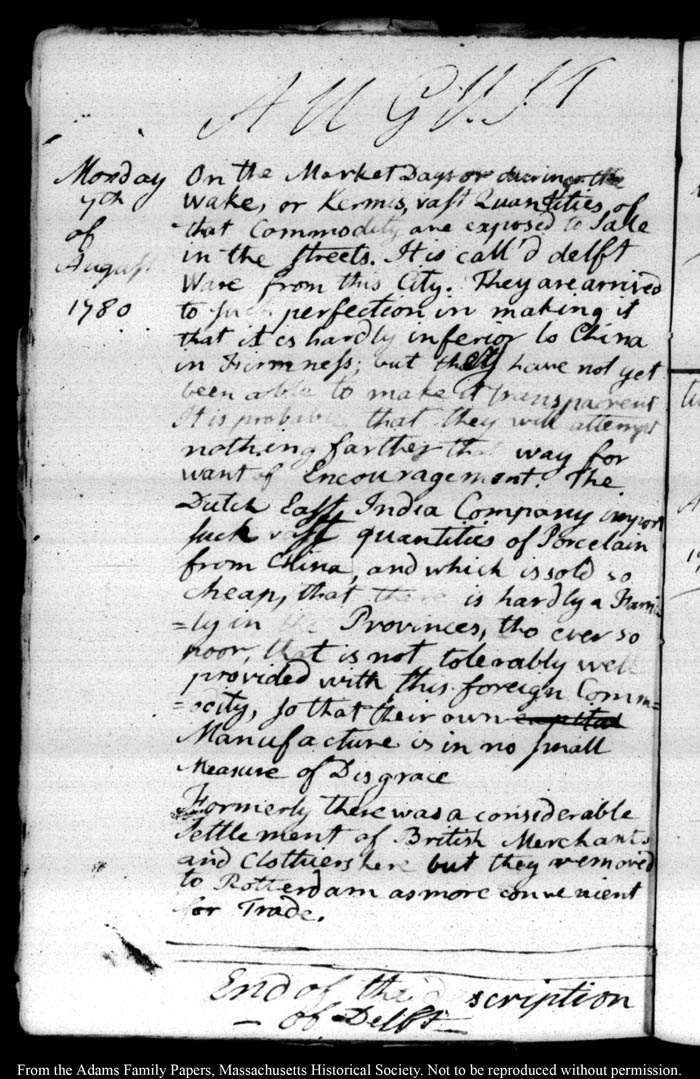 AUGUST
Monday
7th
of
August
1780
On the Market Days or during the
wake, or Kermis, vast Quantities of
that Commodity are exposed to Sale
in the streets. It is call'd delft
Ware from this City. They are arrived
to such perfection in making it
that it is hardly inferior to China
in Firmness; but they have not yet
been able to make it transparent
It is probable that they will attempt
nothing farther that way for
want of Encouragement. The
Dutch East India Company import
such vast quantities of Porcelain
from China, and which is sold so
cheap, that there is hardly a Fami
=ly in the Provinces, tho ever so
poor, that is not tolerably well
provided with this foreign Comm=
=odity, so that their own capital
Manufacture is in no small
Measure of Disgrace
Formerly there was a considerable
Settlement of British Merchants
and Clothiers here but they removed
to Rotterdam as more convenient
for Trade.
End of the description
— of Delft —
From the Adams Family Papers, Massachusetts Historical Society. Not to be reproduced without permission.